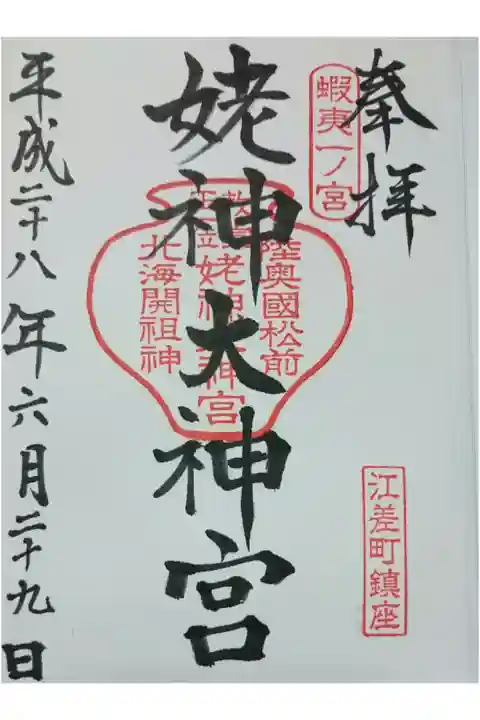 奉拝
蝦夷一ノ宮
江差町鎮座
姥神大神宮
陸奥國松前
姥神大神宮
北海開祖神
平成二十八年六月二十九日